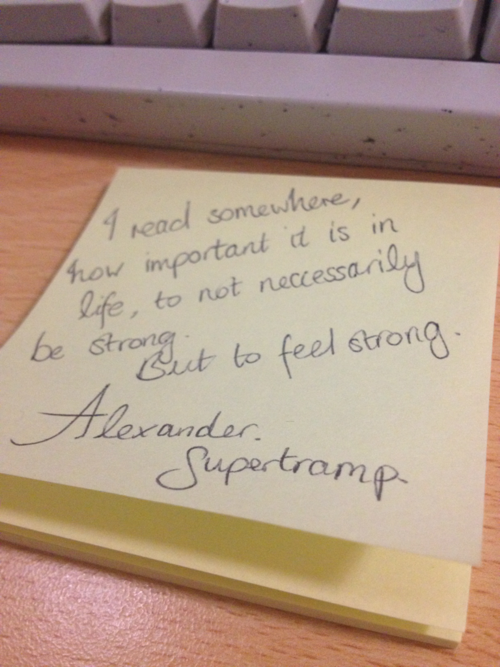 I read somewhere,
how important it is in
life, to not neccessarily
be strong.
But to feel strong.
Alexander.
Supertramp.